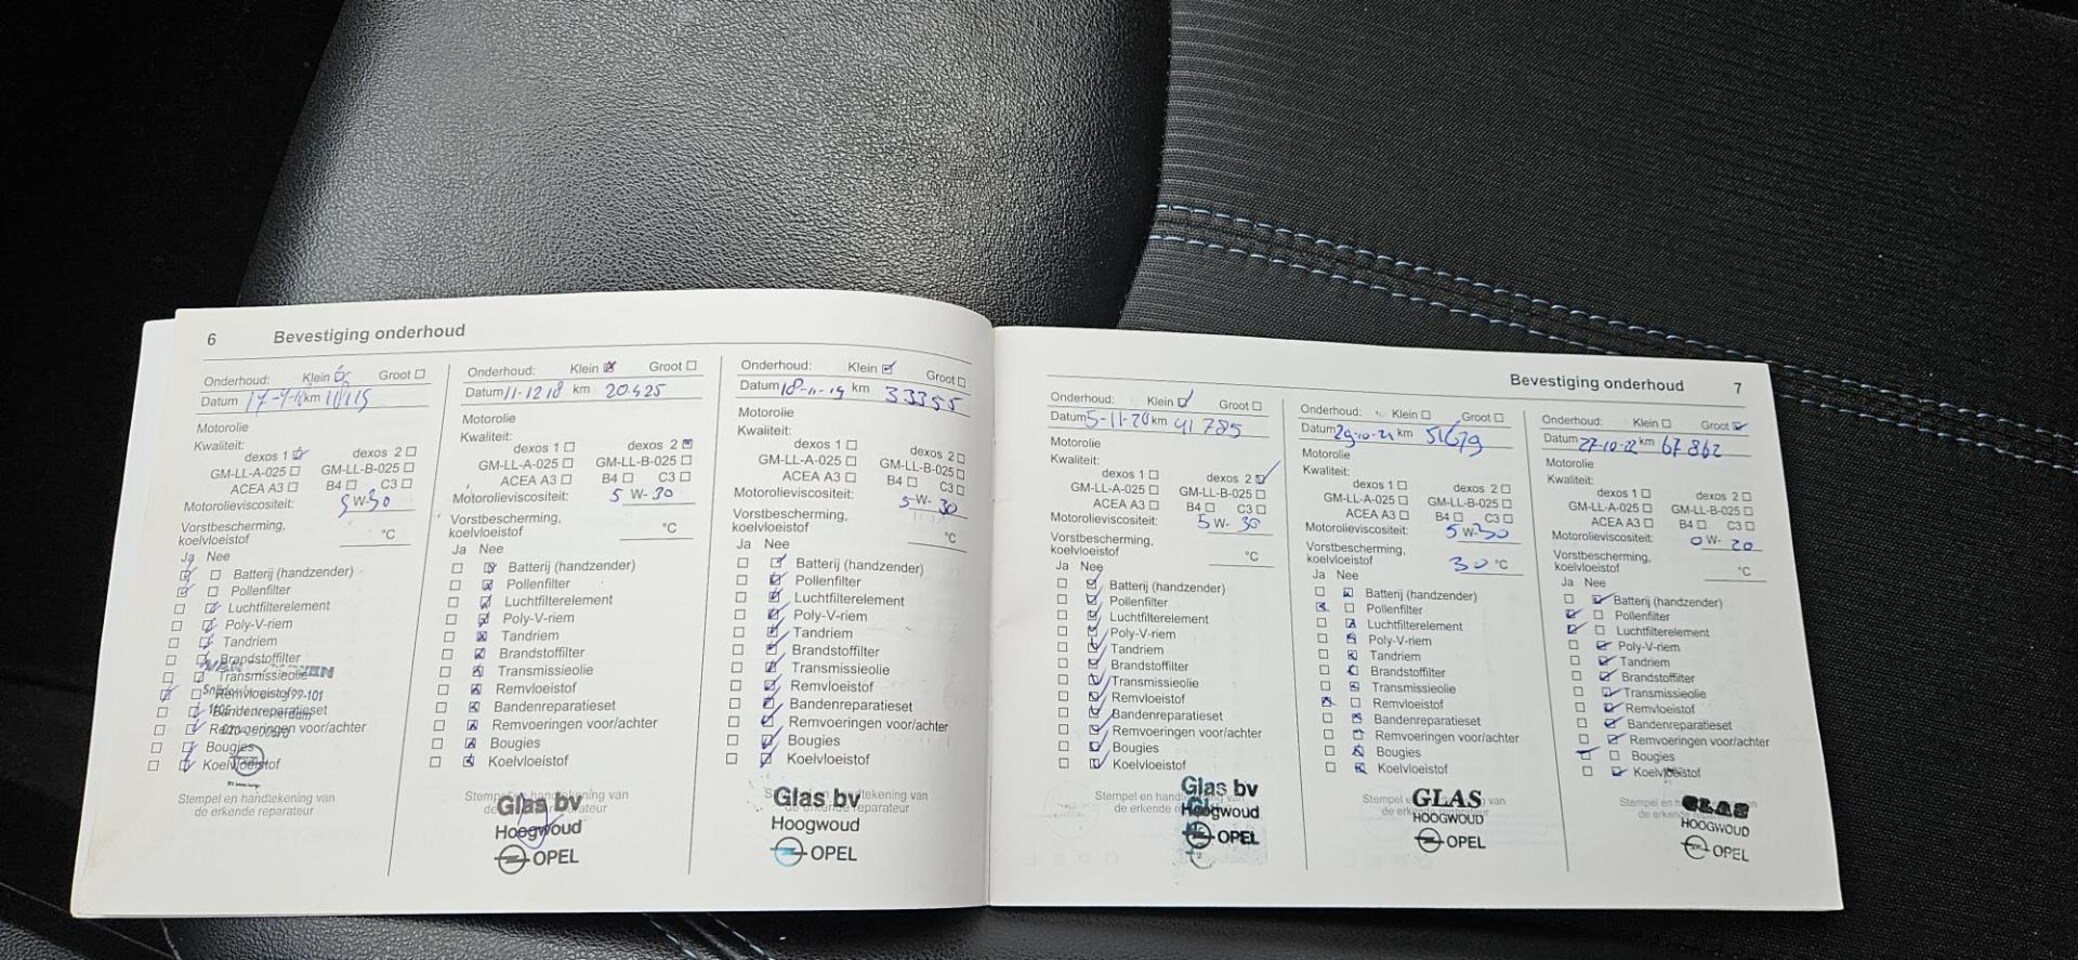 6 Bevestiging onderhoud
Onderhoud: Klein Groot
Datum km
Motorolie
Kwaliteit:
dexos 1 dexos 2
GM-LL-A-025 GM-LL-B-025
ACEA A3 B4 C3
Motorolieviscositeit: 5 W-30
Vorstbescherming,
koelvloeistof °C
Ja Nee
Batterij (handzender)
Pollenfilter
Luchtfilterelement
Poly-V-riem
Tandriem
Brandstoffilter
Transmissieolie
Remvloeistof 99-101
Bandenreparatieset
Remvoeringen voor/achter
Bougies
Koelvloeistof
Stempel en handtekening van
de erkende reparateur
Onderhoud: Klein Groot
Datum 11-12 18 km 20.425
Motorolie
Kwaliteit:
dexos 1 dexos 2
GM-LL-A-025 GM-LL-B-025
ACEA A3 B4 C3
Motorolieviscositeit: 5 W-30
Vorstbescherming,
koelvloeistof °C
Ja Nee
Batterij (handzender)
Pollenfilter
Luchtfilterelement
Poly-V-riem
Tandriem
Brandstoffilter
Transmissieolie
Remvloeistof
Bandenreparatieset
Remvoeringen voor/achter
Bougies
Koelvloeistof
Stempel en handtekening van
Glas bv
Hoogwoud
OPEL
Onderhoud: Klein Groot
Datum 18-11-19 km 33355
Motorolie
Kwaliteit:
dexos 1 dexos 2
GM-LL-A-025 GM-LL-B-025
ACEA A3 B4 C3
Motorolieviscositeit: 5 W- 30
Vorstbescherming,
koelvloeistof °C
Ja Nee
Batterij (handzender)
Pollenfilter
Luchtfilterelement
Poly-V-riem
Tandriem
Brandstoffilter
Transmissieolie
Remvloeistof
Bandenreparatieset
Remvoeringen voor/achter
Bougies
Koelvloeistof
Glas bv
de erkende reparateur
Hoogwoud
OPEL
Bevestiging onderhoud 7
Onderhoud: Klein Groot
Datum 5-11-20 km 41785
Motorolie
Kwaliteit:
dexos 1 dexos 2
GM-LL-A-025 GM-LL-B-025
ACEA A3 B4 C3
Motorolieviscositeit: 5 W- 30
Vorstbescherming,
koelvloeistof °C
Ja Nee
Batterij (handzender)
Pollenfilter
Luchtfilterelement
Poly-V-riem
Tandriem
Brandstoffilter
Transmissieolie
Remvloeistof
Bandenreparatieset
Remvoeringen voor/achter
Bougies
Koelvloeistof
Glas bv
Hoogwoud
OPEL
Onderhoud: Klein Groot
Datum 29-10-21 km 51679
Motorolie
Kwaliteit:
dexos 1 dexos 2
GM-LL-A-025 GM-LL-B-025
ACEA A3 B4 C3
Motorolieviscositeit: 5 W-30
Vorstbescherming,
koelvloeistof 30 °C
Ja Nee
Batterij (handzender)
Pollenfilter
Luchtfilterelement
Poly-V-riem
Tandriem
Brandstoffilter
Transmissieolie
Remvloeistof
Bandenreparatieset
Remvoeringen voor/achter
Bougies
Koelvloeistof
Stempel GLAS van
HOOGWOUD
OPEL
Onderhoud: Klein Groot
Datum 27-10-22 km 67862
Motorolie
Kwaliteit:
dexos 1 dexos 2
GM-LL-A-025 GM-LL-B-025
ACEA A3 B4 C3
Motorolieviscositeit: 0 W- 20
Vorstbescherming,
koelvloeistof °C
Ja Nee
Batterij (handzender)
Pollenfilter
Luchtfilterelement
Poly-V-riem
Tandriem
Brandstoffilter
Transmissieolie
Remvloeistof
Bandenreparatieset
Remvoeringen voor/achter
Bougies
Koelvloeistof
Stempel en GLAS
HOOGWOUD
OPEL